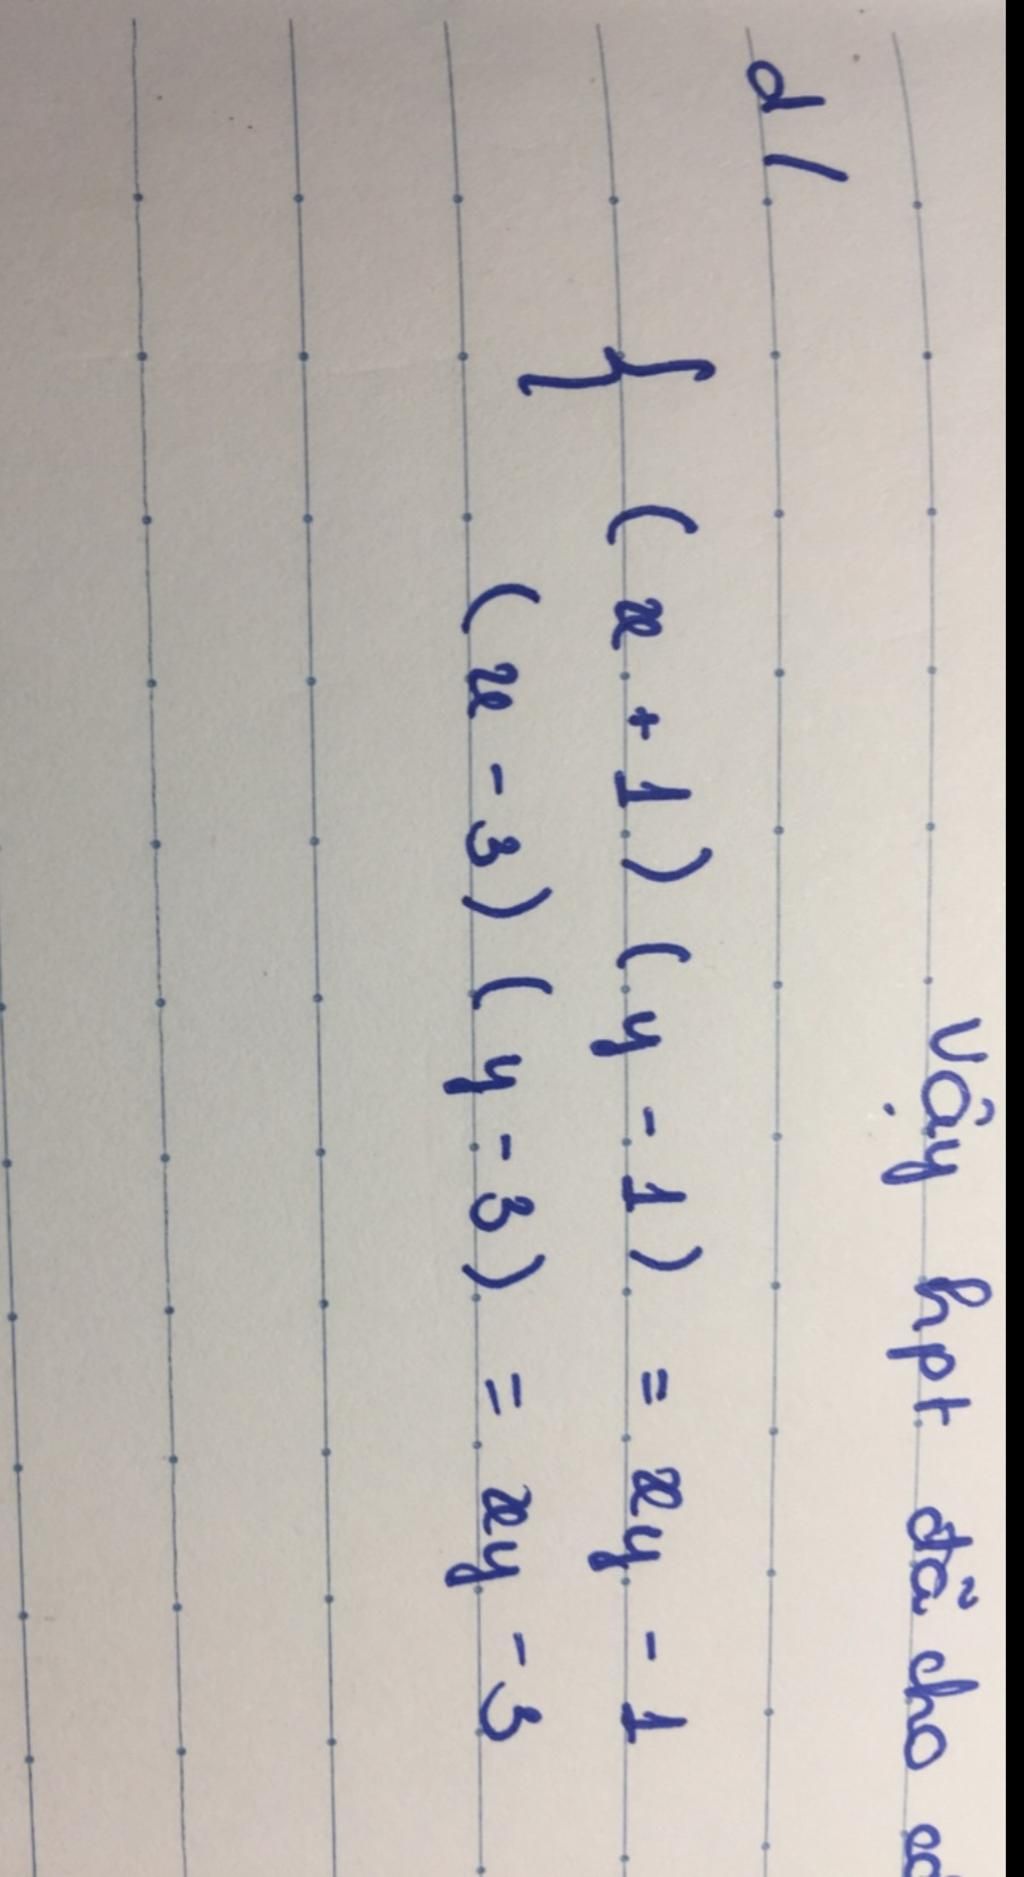 Vậy hpt đã cho
d/
{ (x + 1) (y - 1) = xy - 1
(x - 3) (y - 3) = xy - 3